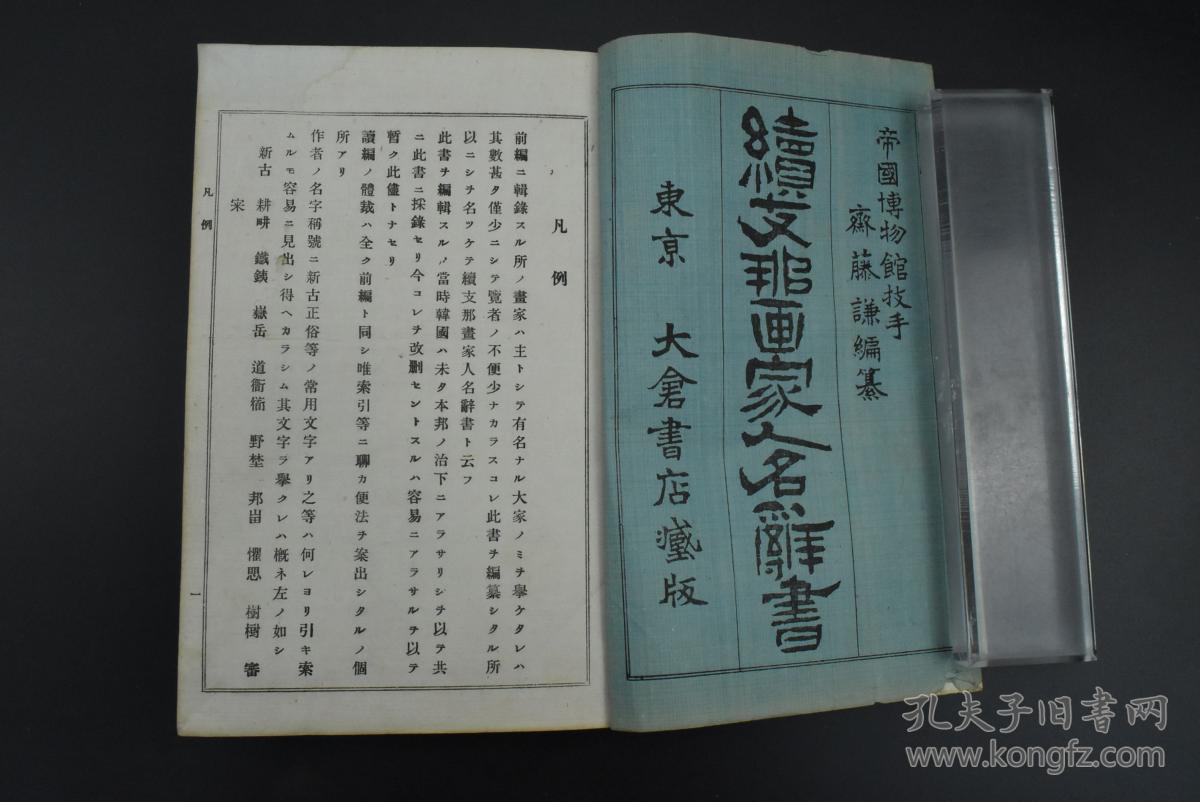 帝國博物館技手
齋藤謙編纂
續支那画家人名辭書
東京 大倉書店藏版
凡例
前編ニ輯錄スル所ノ畫家ハ主トシテ有名ナル大家ノミチ擧ケタレハ
其數甚タ僅少ニシテ覽者ノ不便少ナカラスコレ此書チ編纂シタル所
以ニシチ名ツケテ續支那畫家人名辭書ト云フ
此書チ編輯スルノ當時韓國ハ未タ本邦ノ治下ニアラサリシチ以テ共
ニ此書ニ採錄セリ今コレチ改刪セントスルハ容易ニアラサルチ以テ
暫ク此儘トナセリ
讀編ノ體裁ハ全ク前編ト同シ唯索引等ニ聊カ便法チ案出シタルノ個
所アリ
作者ノ名字稱號ニ新古正俗等ノ常用文字アリ之等ハ何レヨリ引キ索
ムルモ容易ニ見出シ得ヘカラシム其文字ヲ擧クレハ概ネ左ノ如シ
新古 耕畊 鐵銕 嶽岳 道衜衟 野埜 邦峀 懼思 樹樹 審
宷
凡例
一
孔夫子旧书网
www.kongfz.com